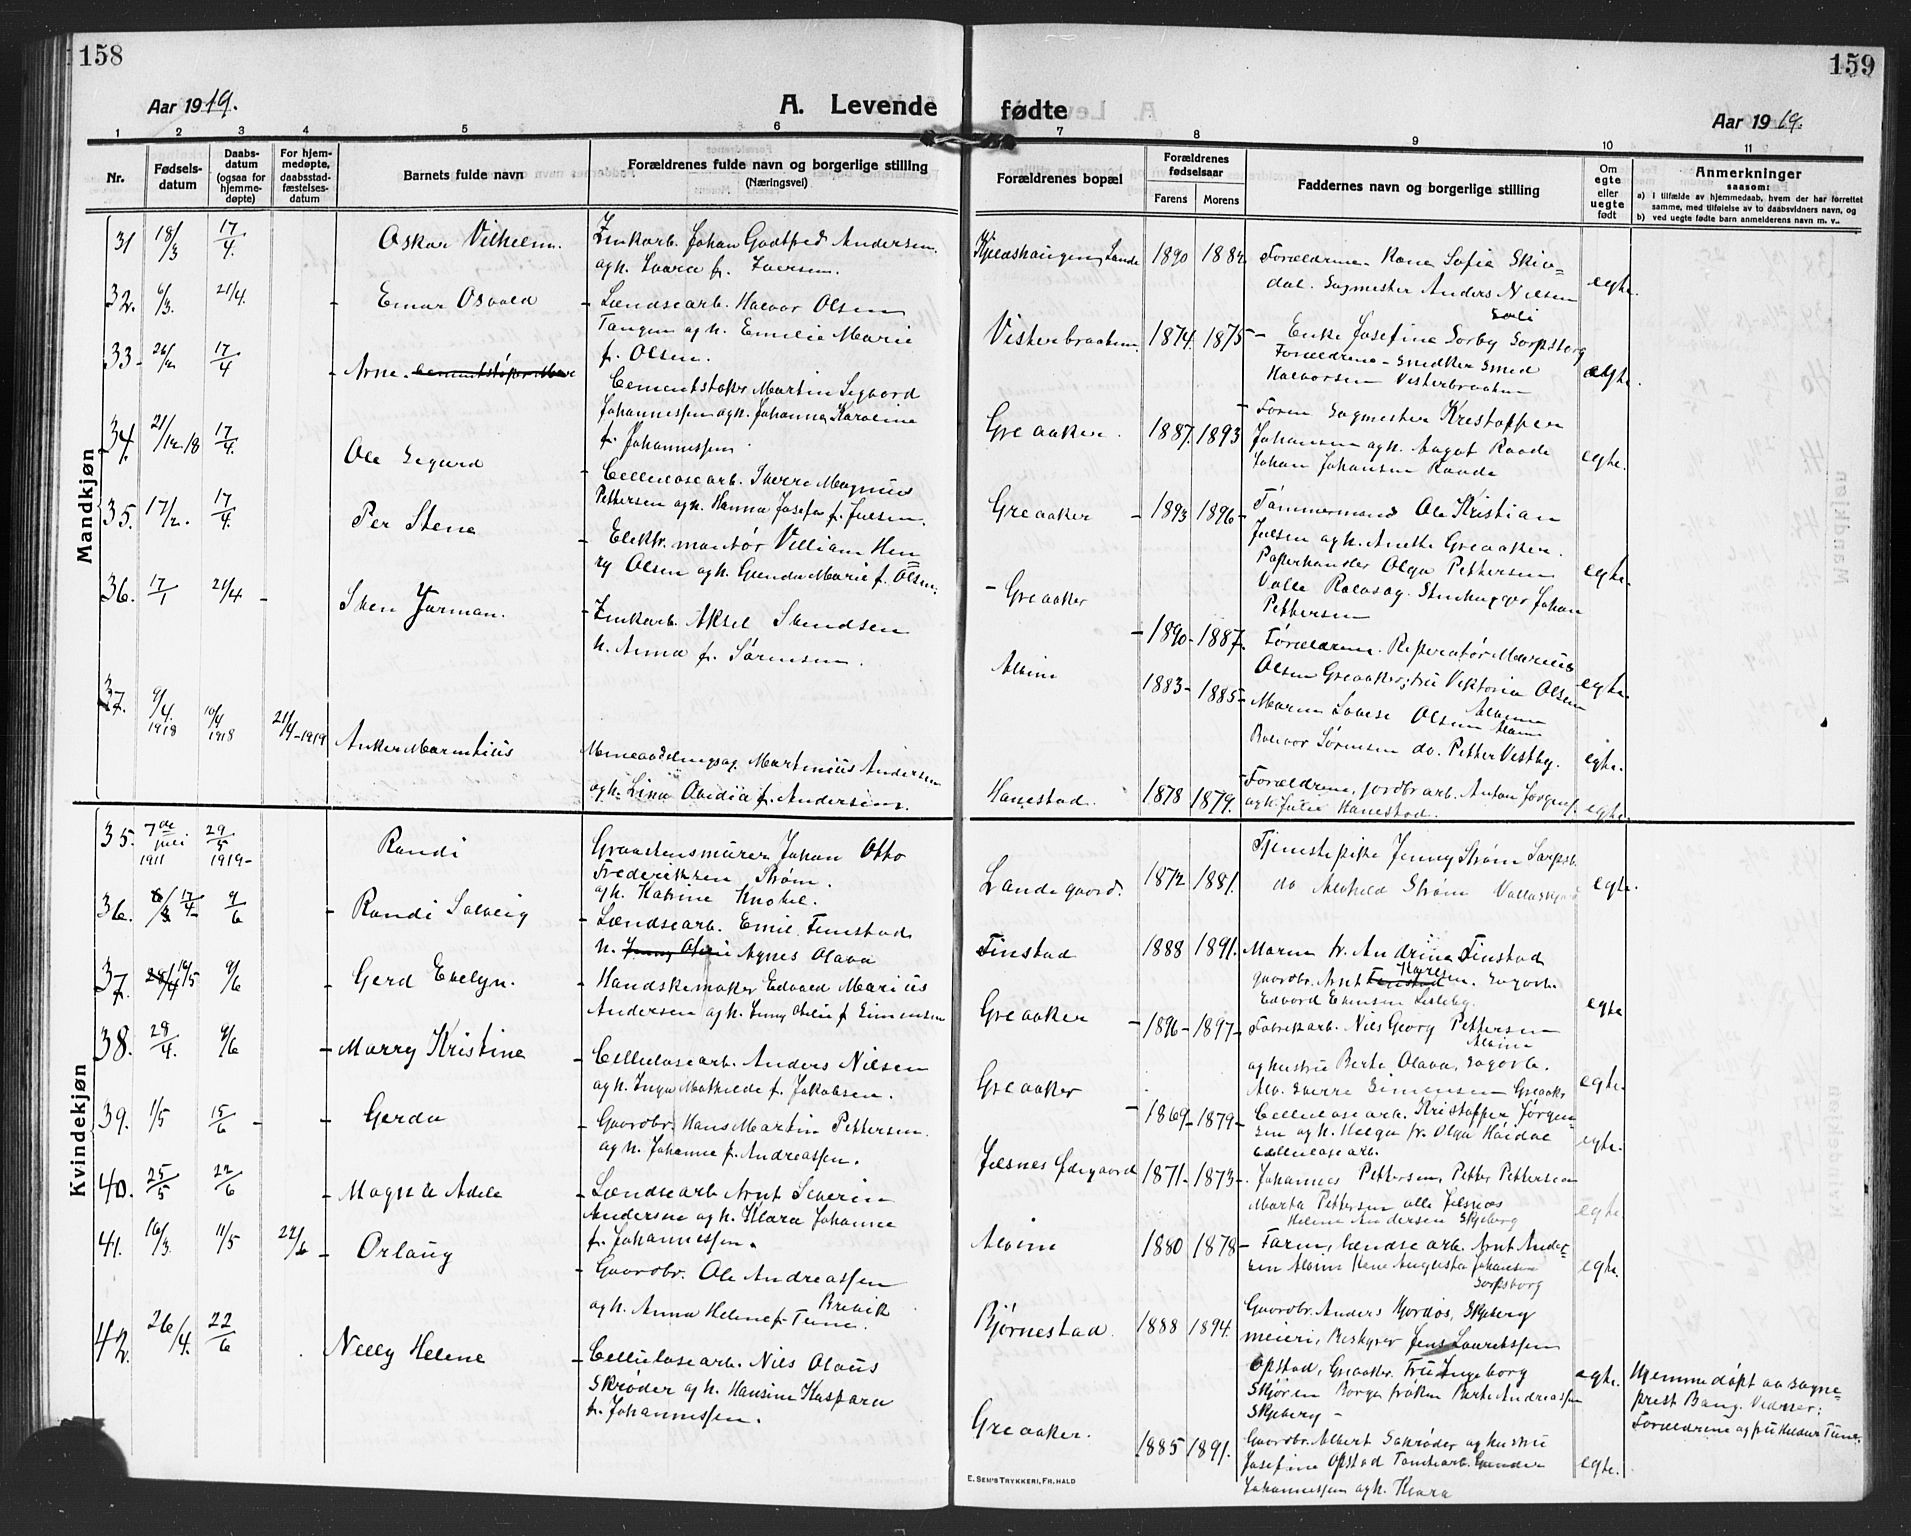 158
159
Aar 1919.
A. Levende
fødte
Aar 1919.
1 2 3 4 5 6 7 8 9 10 11
Nr.
Fødsels-
datum
Daabs-
datum
(ogsaa for
hjemme-
døpte)
For hjem-
medøpte,
daabsstad-
fæstelses-
datum
Barnets fulde navn
Forældrenes fulde navn og borgerlige stilling
(Næringsvei)
Forældrenes bopæl
Forældrenes
fødselsaar
Farens
Morens
Faddernes navn og borgerlige stilling
Om
egte
eller
uegte
født
Anmerkninger
saasom:
a) I tilfælde av hjemmedaab, hvem der har forrettet
samme, med tilføielse av to daabsvidners navn, og
b) ved uegte fødte barn anmelderens navn m. v.
Mandkjøn
31 18/3 17/4. Oskar Vilhelm.
Zinkarb. Johan Godtfred Andersen.
og h. Laura f. Iversen.
1890
Forældrene. Kone Sofie
Sagmester Anders Nilsen
egte.
32. 6/3. 21/4. Einar Osvald
Lændsearb. Halvor Olsen
Tangen og h. Emilie Marie
f. Olsen.
Visterbraaten. 1874. 1875
Enke Josefine Sorby Sarpsborg
Forældrene - Snedker
Halvorsen Visterbraaten
egte.
33 17/4 Arne.
Cementstøper Martin Sigvard
Johannessen og h. Johanna Karoline
f. Johannessen.
Greaaker. 1887. 1893
Sagmester Kristoffer
Johansen og h. Aagot Raade
Johan Johansen Raade
egte.
34. 21/12. 18 17/4. Ole Sigurd
Cellulosearb. Sverre Magnus
Pettersen og h. Hanna Josefa f. Julsen.
Greaaker 1893 1896
Tømmermand Ole Kristian
Julsen og h. Anette Greaaker.
Olga Pettersen
Johan
Pettersen
egte.
35. 17/2. 17/4. Per Stene
Elektr. montør Villiam Hen
ry Olsen og h. Gunda Marie f. Olsen.
Greaaker 1890 1887.
Forældrene. Reperatør Marius
Olsen Greaaker, fru Viktoria Olsen
egte.
36. 17/1 21/4 Sten Jarman.
Zinkarb. Aksel Svendsen
h. Anna f. Sørensen.
Alvim 1883 1885
Maren Lovise Olsen Alvim
Sørensen do. Petter Vestby.
egte.
37. 9/4. 1918 10/4 1918 21/4-1919 Anker Marentius
Martinius Andersen
og h. Lina Ovidia f. Andersen.
Hanestad. 1878 1879.
Forældrene, jordbrarb. Anton Jørgens.
og h. Julie Hanestad.
egte.
Kvindekjøn
35. 7de juli 1911 29/5 1919 Randi
Graastensmurer Johan Otto
Frederiksen Strøm.
og h. Katrine Knobel.
Landegaard. 1872 1881.
Tjenestepike Jenny Strøm Sarpsb.
do Alvhild Strøm
egte.
36. 17/4 9/6 Randi Solveig
Lændsearb. Emil Finstad
h. Agnes Olava
Finstad 1888 1891.
Maren fr. Andrine Finstad
gaardbr. Arnt Karlsen.
Edvard
egte
37. 16/5 9/6 Gerd Evelyn.
Handskemaker Edvard Marius
Andersen og h. Jenny Otelie f. Simensen
Greaaker 1896 1897
Fabrikarb. Nils Georg Pettersen
Alvim
og hustru Berte Olava,
Sverre Simensen Greaaker
egte.
38. 29/4. 9/6 Marry Kristine
Cellulosearb. Anders Nilsen
og h. Inga Mathilde f. Jakobsen.
Greaaker 1869 1879
Cellulosearb. Kristoffer Jørgen
sen og h. Helga fr. Olga
Cellulosearb.
egte.
39. 1/5 15/6 Gerda
Gaardbr. Hans Martin Pettersen.
og h. Johanne f. Andreassen.
Jelsnes Ødegaard 1871 1873
Johannes Pettersen, Petter Pettersen
Marta Pettersen alle Jelsnes
Helene Andersen Skjeberg
egte.
40. 25/5 22/6 Magnhi Adele
Lændsearb Arnt Severin
Andersen og h. Klara Johanne
f. Johannessen.
Alvim 1880 1878
Faren, lændsearb. Arnt Ander-
sen Alvim Kone Augusta Johansen
Sarpsborg
egte.
41. 16/3. 11/5 22/6 Orlaug
Gaardbr. Ole Andreassen
Brevik
og h. Anna Helene f. Tune.
Bjørnestad. 1888 1894.
Gaardbr. Anders Hordos, Skjeberg
meieri, Bestyrer Jens Lauritssen
Opstad, Greaaker. Fru Ingeborg
Skjøren Borge frøken Berte Andreassen
Skjeberg
egte.
Hjemmedøpt av sogne-
prest Bang. Vidner:
Forældrene og fru Tune.
42. 26/4. 22/6 Nelly Helene
Cellulosearb. Nils Olaus
Skrøder og h. Hansine Kaspara
f. Johannessen.
Greaaker. 1885 1891.
Gaardbr. Albert Schrøder og hustru
Josefine Opstad Tomtearb. Gunder
Johannessen og h. Klara
egte.
E. SEM'S TRYKKERI, FR.HALD